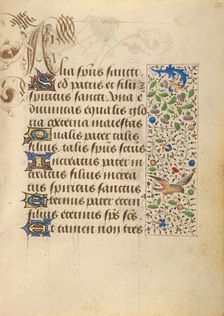 Alia spūs sancti
Sed patris et filii et
spiritus sancti una ē
diuinitas equalis glo
ria coeterna maiestas
Qualis pater talis
filius talis spūs scūs
Increatus pater in
creatus filius increa
tus spiritus sanctus
Eternus pater eternus
filius eternus spūs scūs
Et tamen non tres